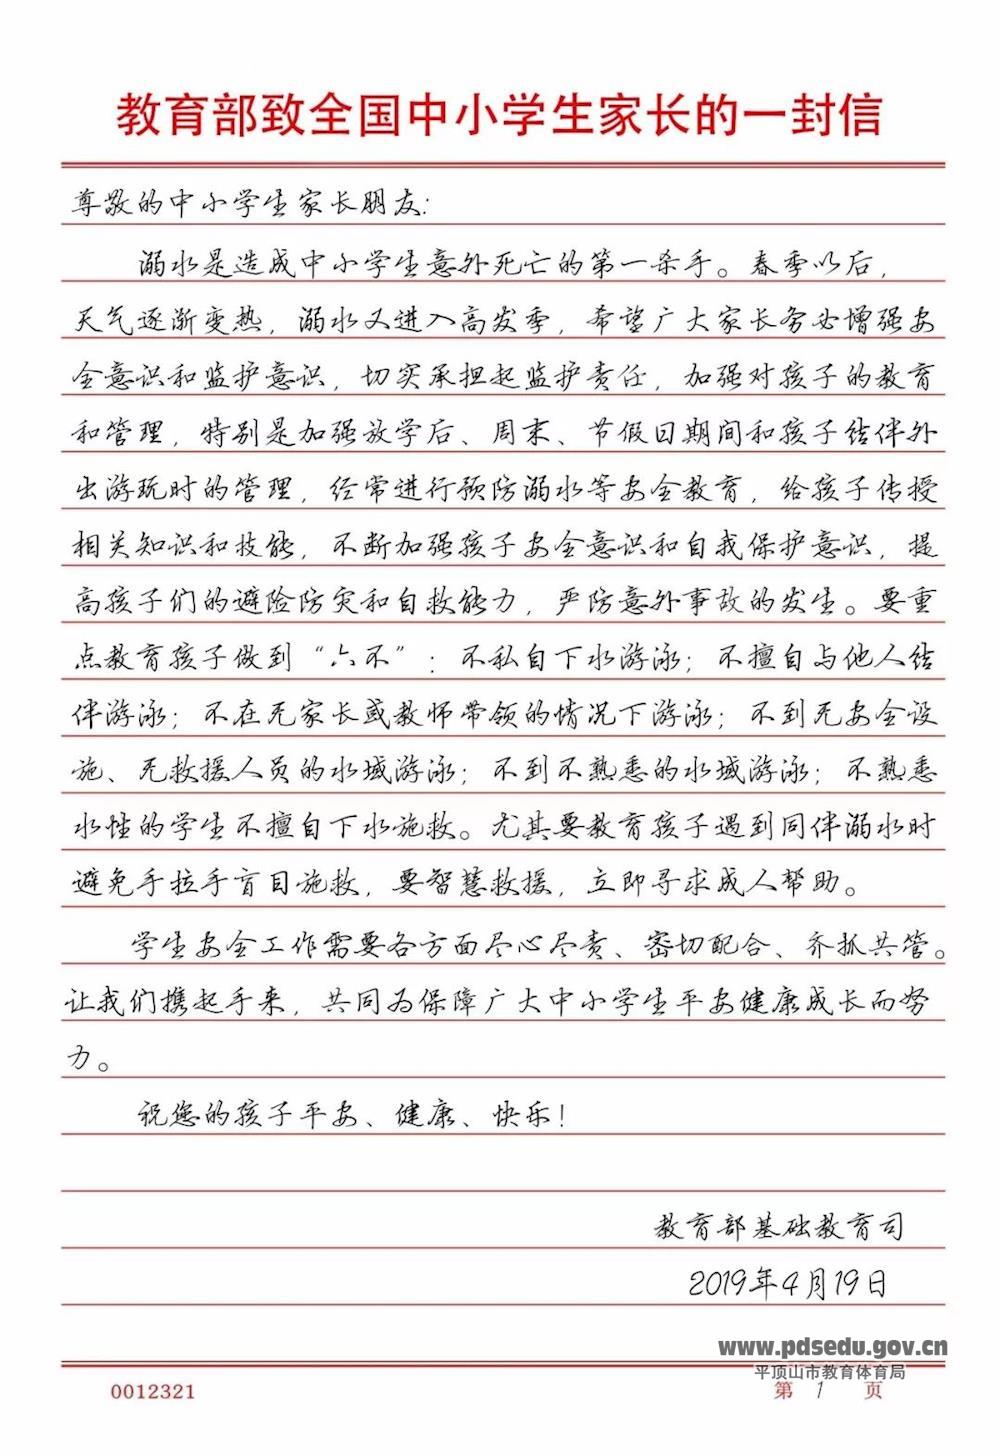 教育部致全国中小学生家长的一封信
尊敬的中小学生家长朋友:
溺水是造成中小学生意外死亡的第一杀手。春季以后,
天气逐渐变热,溺水又进入高发季,希望广大家长务必增强安
全意识和监护意识,切实承担起监护责任,加强对孩子的教育
和管理,特别是加强放学后、周末、节假日期间和孩子结伴外
出游玩时的管理,经常进行预防溺水等安全教育,给孩子传授
相关知识和技能,不断加强孩子安全意识和自我保护意识,提
高孩子们的避险防灾和自救能力,严防意外事故的发生。要重
点教育孩子做到“六不”:不私自下水游泳;不擅自与他人结
伴游泳;不在无家长或教师带领的情况下游泳;不到无安全设
施、无救援人员的水域游泳;不到不熟悉的水域游泳;不熟悉
水性的学生不擅自下水施救。尤其要教育孩子遇到同伴溺水时
避免手拉手盲目施救,要智慧救援,立即寻求成人帮助。
学生安全工作需要各方面尽心尽责、密切配合、齐抓共管。
让我们携起手来,共同为保障广大中小学生平安健康成长而努
力。
祝您的孩子平安、健康、快乐!
教育部基础教育司
2019年4月19日
www.pdsedu.gov.cn
平顶山市教育体育局
0012321 第 1 页